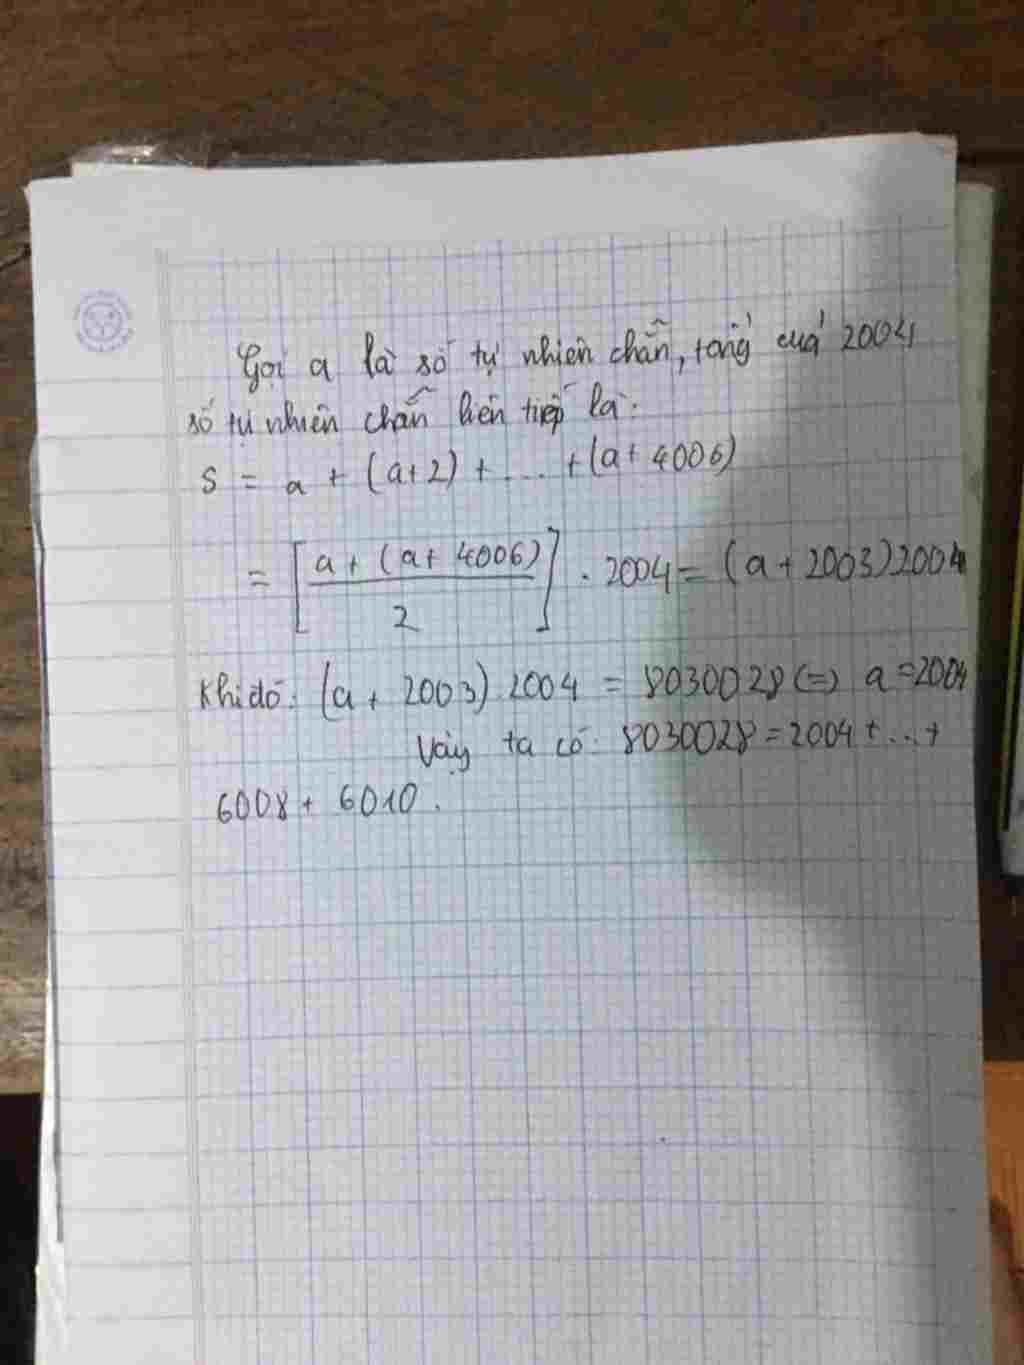 Gọi a là số tự nhiên chẵn, tổng của 2004
số tự nhiên chẵn liên tiếp là:
S = a + (a+2) + ... + (a+ 4006)
= [(a + (a+ 4006))/2] . 2004 = (a + 2003)2004
Khi đó: (a + 2003) 2004 = 8030028 (=) a = 2004
Vậy ta có: 8030028 = 2004 + ... +
6008 + 6010.